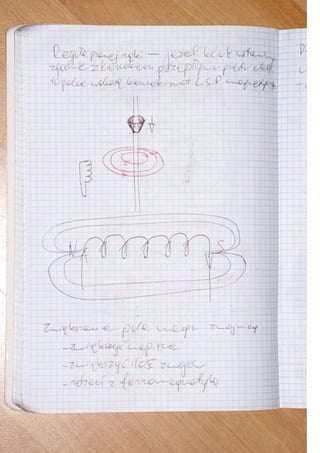 Reguła prawej ręki – jeżeli kciuk ustawimy
zgodnie z kierunkiem przepływu prądu to
palce wskażą zwrot magnetycz
N S
Zwiększenie pola magn zwojnicy
- zwiększyć napięcie
- zwiększyć ilość zwojów
- rdzeń z ferromagnetyka